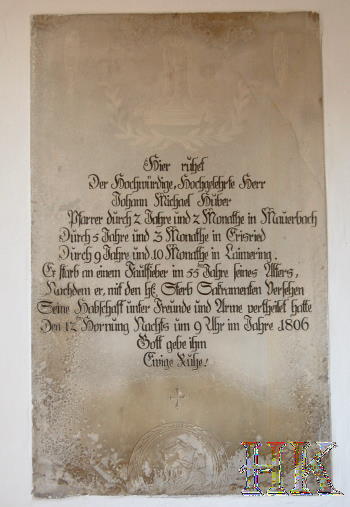 Hier ruhet
Der Hochwürdige, Hochgelehrte Herr
Johann Michael Huber
Pfarrer durch 2 Jahre und 2 Monathe in Mauerbach
Durch 5 Jahre und 3 Monathe in Erisried
Durch 9 Jahre und 10 Monathe in Laimering.
Er starb an einem Faulfieber im 55 Jahre seines Alters,
Nachdem er, mit den hl. Sterb Sakramenten Versehen
Seine Habschaft unter Freunde und Arme vertheilet hatte
Den 12ten Hornung Nachts um 9 Uhr im Jahre 1806
Gott gebe ihm
Ewige Ruhe!
HK